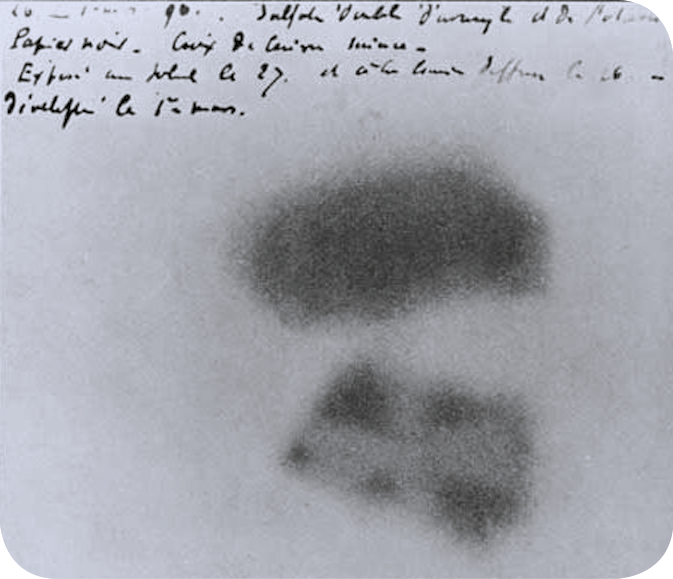 Sulfate Double d'uranyle et de Potassium
Papier noir. Croix de Cuivre mince -
Exposé au soleil le 27. et à la lumière diffuse le 26. -
Développé le 1er mars.